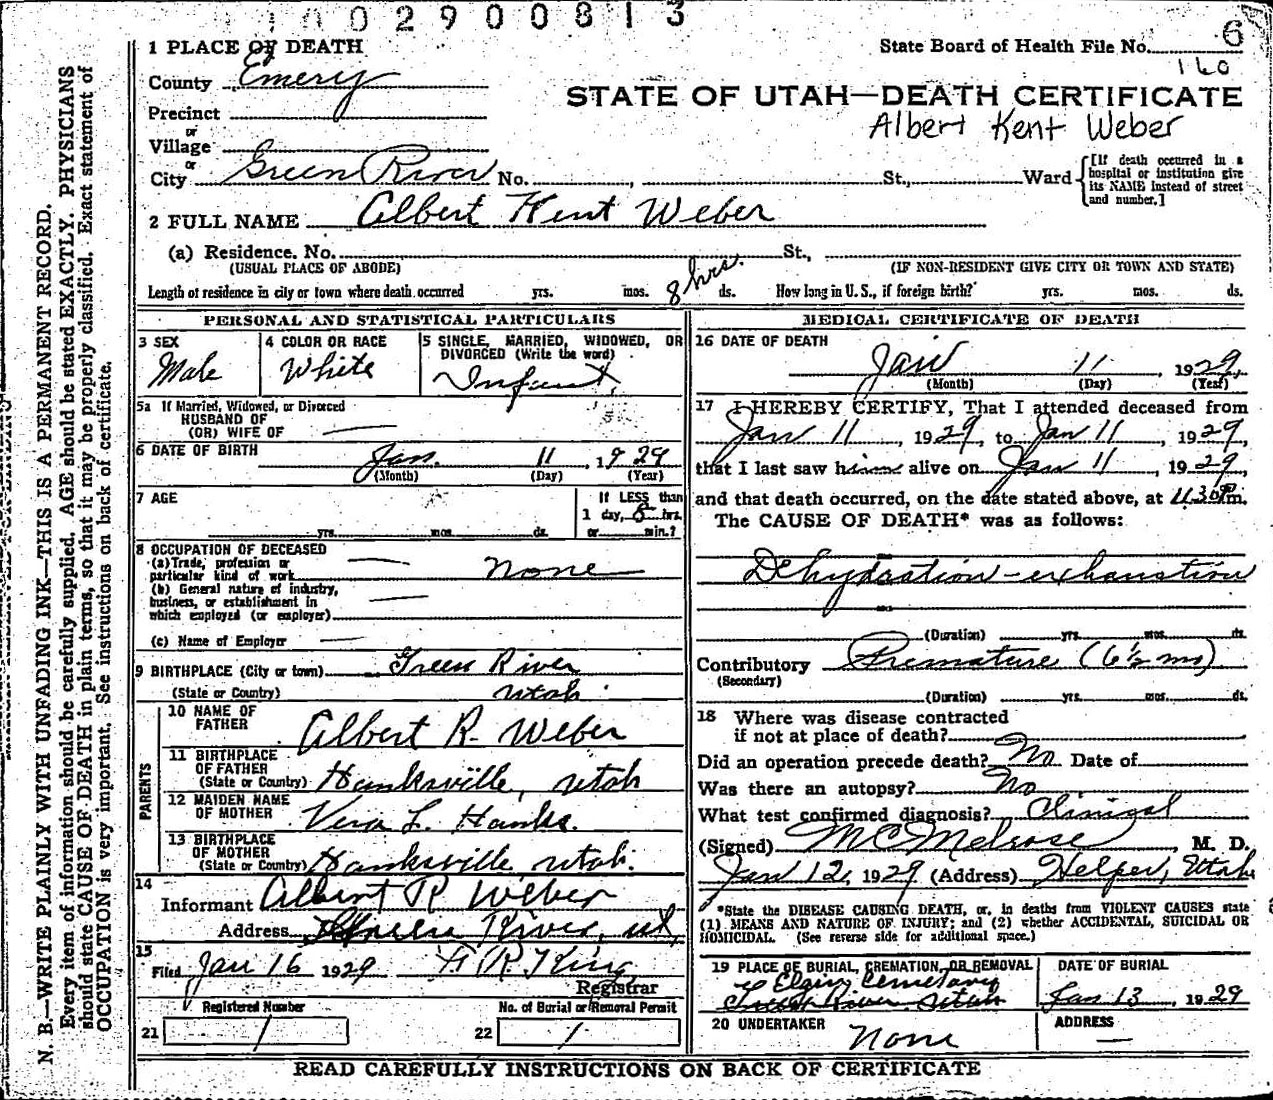 002900813
1 PLACE OF DEATH
State Board of Health File No. 6
160
County Emery
STATE OF UTAH—DEATH CERTIFICATE
Precinct
Albert Kent Weber
or
Village
or
City Green River No. , St., Ward {[If death occurred in a hospital or institution give its NAME instead of street and number.]
2 FULL NAME Albert Kent Weber
(a) Residence. No. St.,
(USUAL PLACE OF ABODE) (IF NON-RESIDENT GIVE CITY OR TOWN AND STATE)
Length of residence in city or town where death occurred yrs. mos. 8 hrs. ds. How long in U. S., if foreign birth? yrs. mos. ds.
PERSONAL AND STATISTICAL PARTICULARS
3 SEX
Male
4 COLOR OR RACE
White
5 SINGLE, MARRIED, WIDOWED, OR
DIVORCED (Write the word)
Infant
5a If Married, Widowed, or Divorced
HUSBAND OF
(OR) WIFE OF
6 DATE OF BIRTH
Jan. 11, 1929
(Month) (Day) (Year)
7 AGE
yrs. mos. ds.
If LESS than
1 day, 8 hrs.
or min.?
8 OCCUPATION OF DECEASED
(a) Trade, profession or
particular kind of work none
(b) General nature of industry,
business, or establishment in
which employed (or employer)
(c) Name of Employer
9 BIRTHPLACE (City or town) Green River
(State or Country) Utah.
PARENTS
10 NAME OF
FATHER Albert R. Weber
11 BIRTHPLACE
OF FATHER
(State or Country) Hanksville, Utah
12 MAIDEN NAME
OF MOTHER Vera L. Hanks.
13 BIRTHPLACE
OF MOTHER
(State or Country) Hanksville, Utah.
14
Informant Albert R Weber
Address Green River, Ut,
15
Filed Jan 16 1929 King
Registrar
Registered Number
21 1
No. of Burial or Removal Permit
22 1
MEDICAL CERTIFICATE OF DEATH
16 DATE OF DEATH
Jan 11, 1929,
(Month) (Day) (Year)
17 I HEREBY CERTIFY, That I attended deceased from
Jan 11, 1929, to Jan 11, 1929,
that I last saw him alive on Jan 11, 1929,
and that death occurred, on the date stated above, at 11:30 P.m.
The CAUSE OF DEATH* was as follows:
Dehydration-exhaustion
(Duration) yrs. mos. ds.
Contributory Premature (6½ mo)
(Secondary)
(Duration) yrs. mos. ds.
18 Where was disease contracted
if not at place of death?
Did an operation precede death? No Date of
Was there an autopsy? No
What test confirmed diagnosis? Clinical
(Signed) M C Melrose, M. D.
Jan 12, 1929 (Address) Helper, Utah
*State the DISEASE CAUSING DEATH, or, in deaths from VIOLENT CAUSES state
(1) MEANS AND NATURE OF INJURY; and (2) whether ACCIDENTAL, SUICIDAL OR
HOMICIDAL. (See reverse side for additional space.)
19 PLACE OF BURIAL, CREMATION, OR REMOVAL
Elgin Cemetary
Green River Utah
DATE OF BURIAL
Jan 13, 1929
20 UNDERTAKER
None
ADDRESS
—
READ CAREFULLY INSTRUCTIONS ON BACK OF CERTIFICATE
N. B.—WRITE PLAINLY WITH UNFADING INK—THIS IS A PERMANENT RECORD.
Every item of information should be carefully supplied. AGE should be stated EXACTLY. PHYSICIANS
should state CAUSE OF DEATH in plain terms, so that it may be properly classified. Exact statement of
OCCUPATION is very important. See instructions on back of certificate.